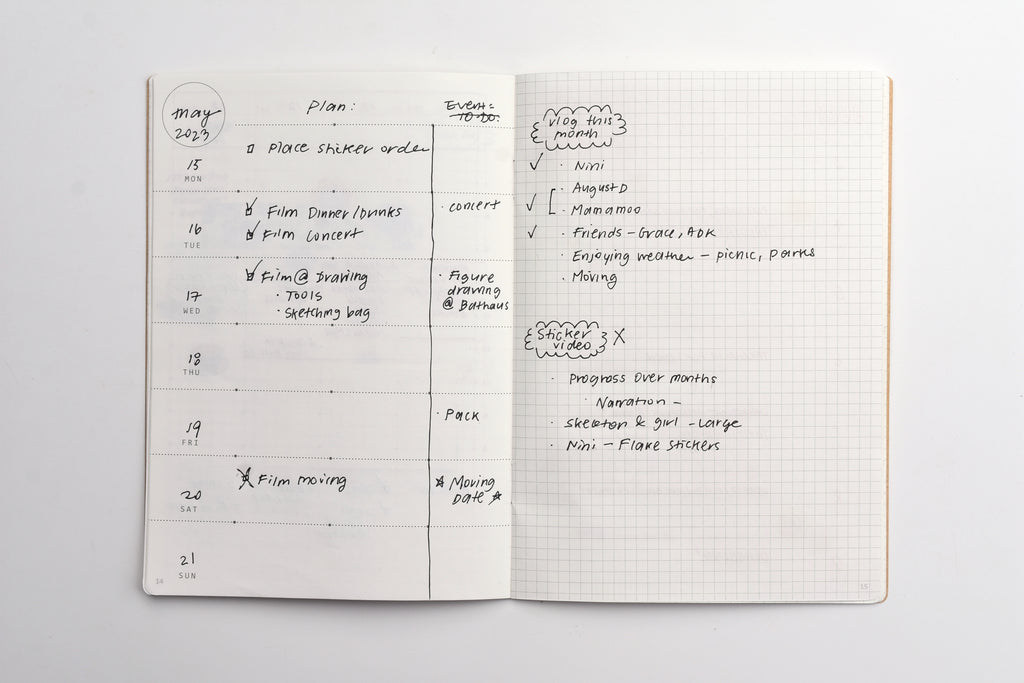 may
2023
Plan:
Event:
To Do:
15
MON
Place sticker order
16
TUE
Film Dinner/Drinks
Film Concert
· concert
17
WED
Film @ Drawing
· TOOLS
· Sketching bag
· Figure
drawing
@ Bathaus
18
THU
19
FRI
· Pack
20
SAT
Film moving
Moving
Date
21
SUN
14
Vlog this
month
· Nini
· August D
· Mamamoo
· Friends - Grace, ADK
· Enjoying weather - picnic, parks
· Moving
Sticker
video
X
· Progress over months
· Narration -
· Skeleton & girl - Large
· Nini - Flake Stickers
15